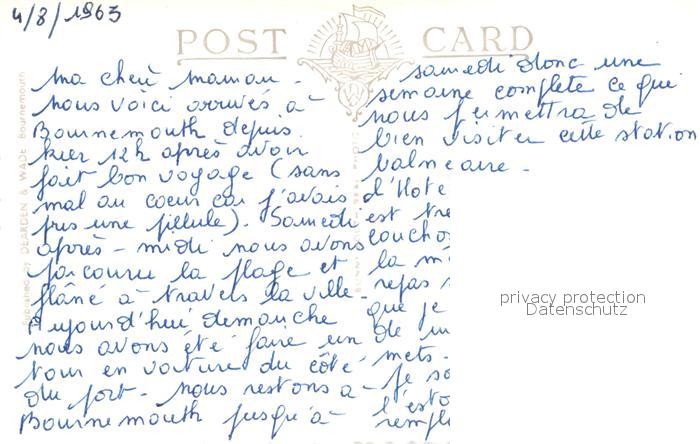 4/8/1963
POST CARD
Ma chère maman -
nous voici arrivés à
Bournemouth depuis
hier 12h après avoir
fait bon voyage (sans
mal au coeur car j'avais
pris une pillule). Samedi
après-midi nous avons
parcouru la plage et
flâné à travers la ville.
Aujourd'hui dimanche
nous avons été faire un
tour en voiture du côté
du port. nous restons à
Bournemouth jusqu'à
samedi donc une
semaine complète ce que
nous permettra de
bien visiter cette station
balneaire.
d'Hote
est tre
coucho
la m
repas
que je
de
mets.
je so
l'esto
rempl
Published by DEARDEN & WADE Bournemouth
privacy protection
Datenschutz